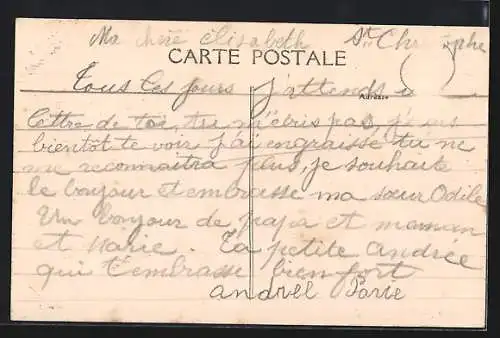 Ma chère Elisabeth St Christophe
CARTE POSTALE
Tous les jours j'attends
Adresse
lettre de toi, tu m'écris pas, j'
bientôt te voir j'ai engraisse tu ne
me reconnaitra plus, je souhaite
le bonjour et embrasse ma sœur Odile
Un bonjour de papa et maman
et Marie. Ta petite Andrée
qui t'embrasse bien fort